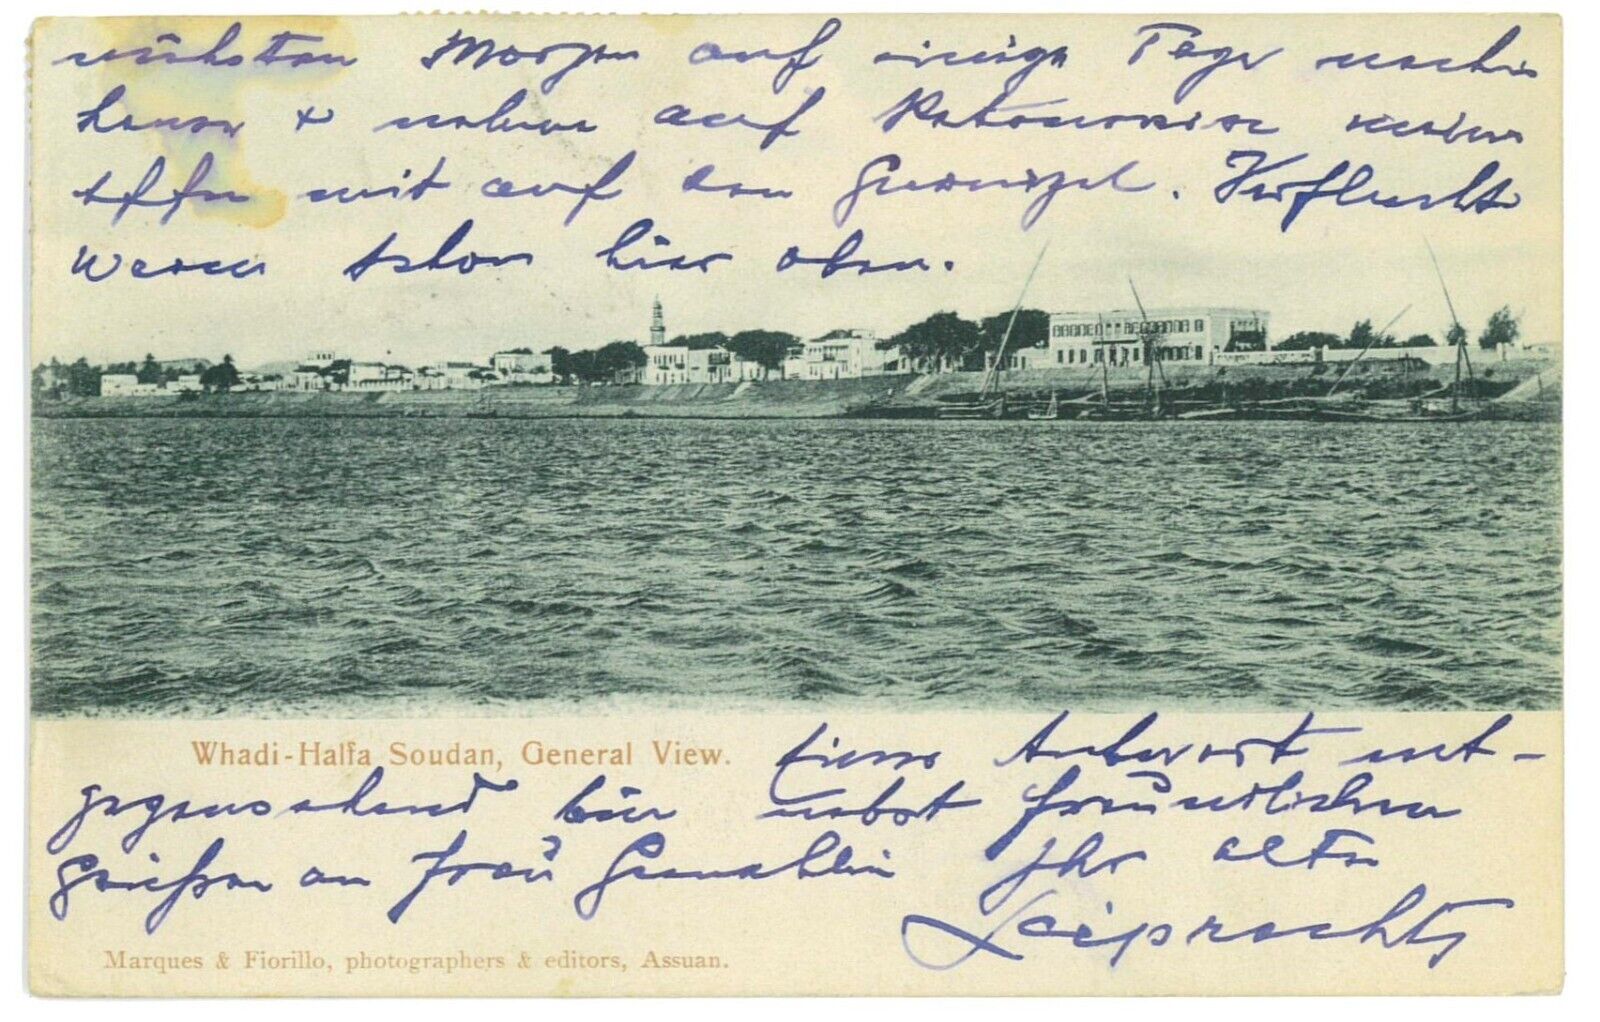 nächsten Morgen auf einige Tage nach
hause & nehme auf
mit auf den Verflucht
warm schon hier oben.
Whadi-Halfa Soudan, General View.
Ihrer Antwort ent-
gegensehend bin nebst freundlichen
Grüßen an Frau Gemahlin Ihr alter
Marques & Fiorillo, photographers & editors, Assuan.